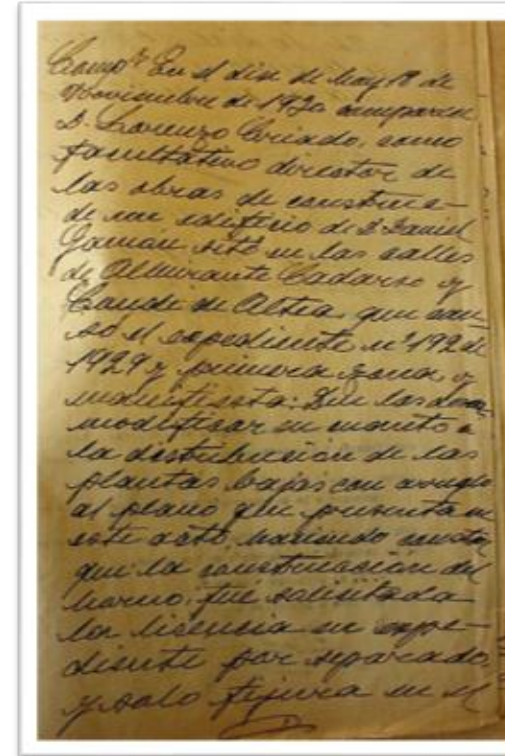 Comp.ª En el día de hoy 18 de
Noviembre de 1930 comparece
D. Lorenzo Criado, como
facultativo director de
las obras de construc-
de un edificio de D. Daniel
Gamón sito en las calles
de Almirante Cadarso y
Conde de Altea, que cau-
só el expediente nº 192 de
1929 y primera zona, y
manifiesta: Que las desea
modificar en cuanto a
la distribución de las
plantas bajas con arreglo
al plano que presenta en
este acto, haciendo constar
que la construcción del
horno, fué solicitada
la licencia en expe-
diente por separado
y solo figura en el